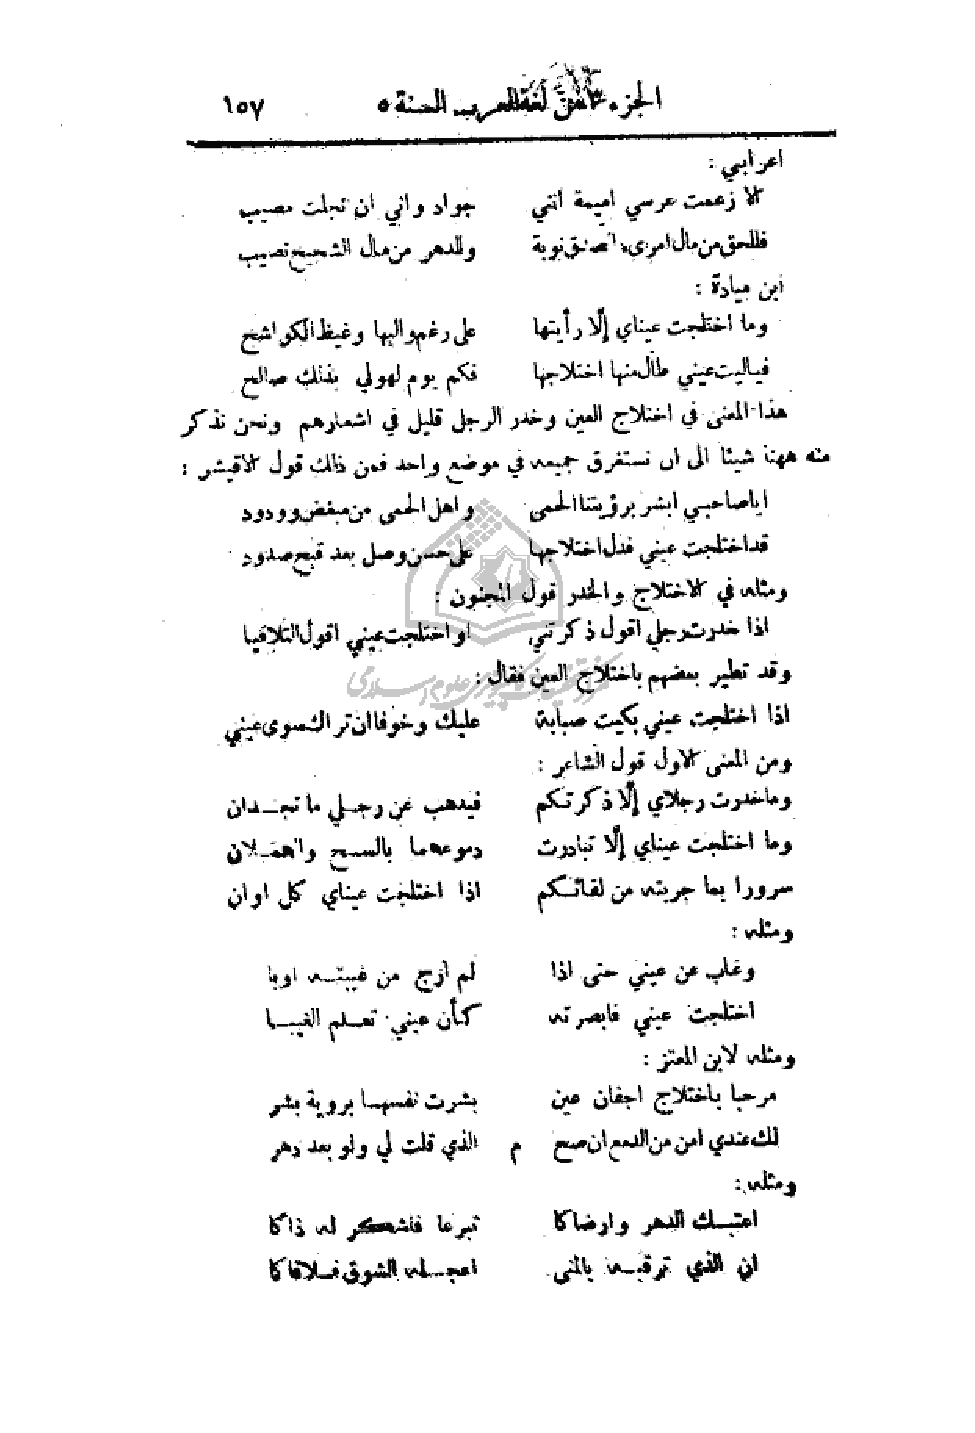 الجزء ٣ من لغة العرب السنة ٥ ١٥٧
اعرابي :
الا زعمت عرسي اميمة انني جواد واني ان نجلت مصيب
فللحق من مال امرىء نوبة وللدهر من مال الشحيح نصيب
ابن ميادة :
وما اختلجت عيناي إلّا رأيتها على رغم واليها وغيظ الكواشح
فياليت عيني طال منها اختلاجها فكم يوم لهولي بذلك صالح
هذا المعنى في اختلاج العين وخدر الرجل قليل في اشعارهم ونحن نذكر
منه ههنا شيئا الى ان نستغرق جميعه في موضع واحد فمن ذلك قول الاقيشر :
ايا صاحبي ابشر برؤيتنا الحمى واهل الحمى من مبغض وودود
قد اختلجت عيني فدل اختلاجها على حسن وصل بعد قبح صدود
ومثله في الاختلاج والخدر قول المجنون :
اذا خدرت رجلي اقول ذكرتني او اختلجت عيني اقول التلاقيا
وقد تطير بعضهم باختلاج العين فقال :
اذا اختلجت عيني بكيت صبابة عليك وخوفا ان تراك سوى عيني
ومن المعنى الاول قول الشاعر :
وما خدرت رجلاي إلّا ذكرتكم فيذهب عن رجلي ما تجدان
وما اختلجت عيناي إلّا تبادرت دموعهما بالسح والهملان
سرورا بما جربته من لقائكم اذا اختلجت عيناي كل اوان
ومثله :
وغاب عن عيني حتى اذا لم ارج من غيبته اوبا
اختلجت عيني فابصرته كأن عيني تعلم الغيبا
ومثله لابن المعتز :
مرحبا باختلاج اجفان عين بشرت نفسها بروية بشر
لك عندي امن من الدمع ان صح م الذي قلت لي ولو بعد دهر
ومثله :
اعتبك الدهر وارضاكا تبرعا فاشكر له ذاكا
ان الذي ترقبه بالمنى اعجله الشوق فلاقاكا